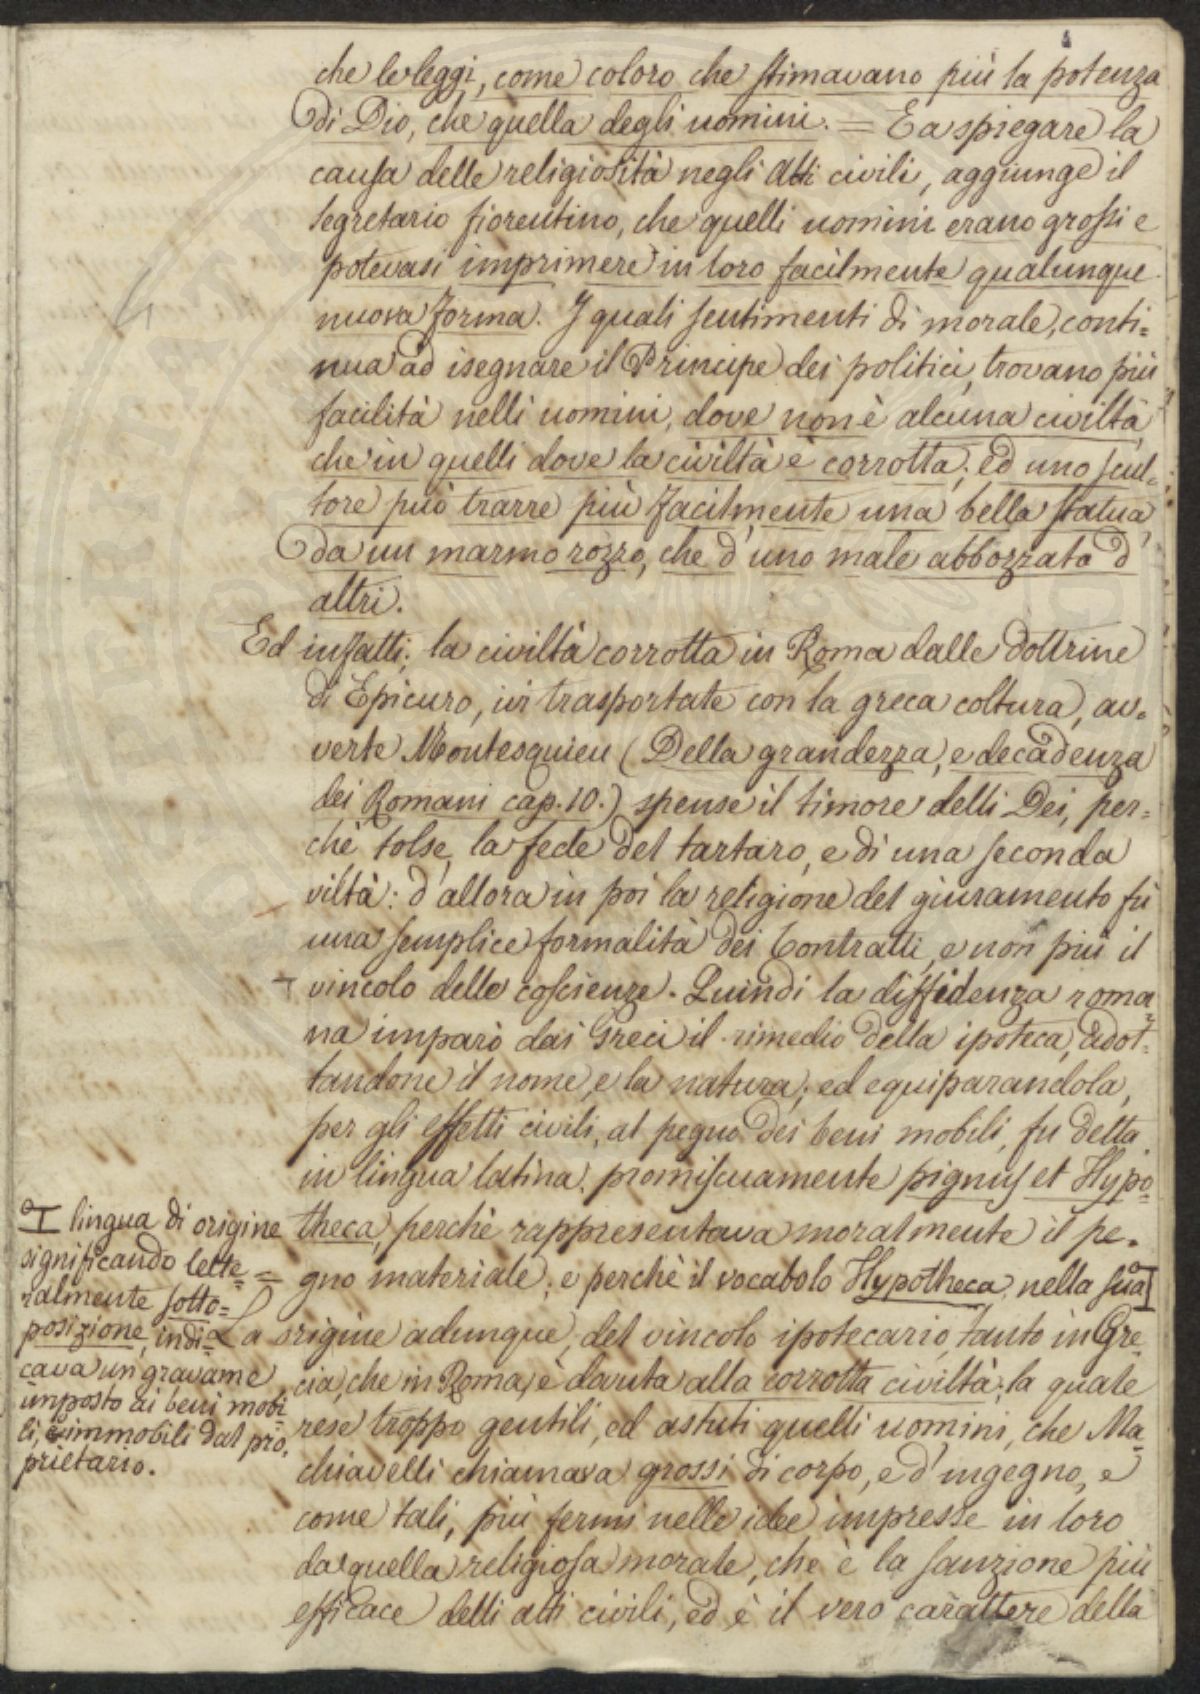 che le leggi, come coloro che stimavano più la potenza
di Dio, che quella degli uomini. = E a spiegare la
causa della religiosità negli atti civili, aggiunge il
segretario fiorentino, che quelli uomini erano grossi e
potevasi imprimere in loro facilmente qualunque
nuova forma. I quali sentimenti di morale, conti=
nua ad isegnare il Principe dei politici, trovano più
facilità nelli uomini, dove non è alcuna civiltà,
che in quelli dove la civiltà è corrotta; ed uno scul=
tore può trarre più facilmente una bella statua,
da un marmo rozzo, che d'uno male abbozzato d
altri.
Ed infatti; la civiltà corrotta in Roma dalle dottrine
di Epicuro, ivi trasportate con la greca coltura, av=
verte Montesquieu (Della grandezza, e decadenza
dei Romani cap. 10.) spense il timore delli Dei, per=
chè tolse, la fede del tartaro, e di una seconda
viltà: d'allora in poi la religione del giuramento fù
una semplice formalità dei Contratti, e non più il
vincolo delle coscienze. Quindi la diffidenza roma=
na imparò dai Greci il rimedio della ipoteca, adot=
tandone il nome, e la natura; ed equiparandola,
per gli effetti civili, al pegno dei beni mobili, fu detta
in lingua latina, promiscuamente pignus et Hypo=
theca, perchè rappresentava moralmente il pe=
gno materiale; e perchè il vocabolo Hypotheca, nella sua
lingua di origine
significando lette=
ralmente sotto=
posizione, indi=
cava un gravame
imposto ai beni mobi
li, e immobili dal pro=
prietario.
La origine adunque, del vincolo ipotecario, tanto in Gre=
cia, che in Roma, è dovuta alla corrotta civiltà; la quale
rese troppo gentili, ed astuti quelli uomini, che Ma=
chiavelli chiamava grossi di corpo, e d'ingegno, e
come tali, più fermi nelle idee impresse in loro
da quella religiosa morale, che è la sanzione più
efficace delli atti civili, ed è il vero carattere della